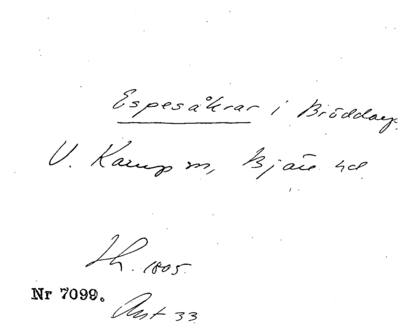 Espesåkrar i Bröddarp
V. Karup sn, Bjäre hd
Sk. 1805
Nr 7099.
Ant 33